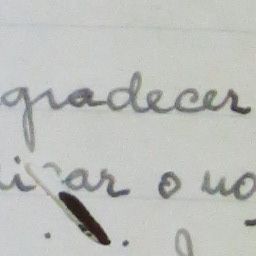 gradecer
ar o no